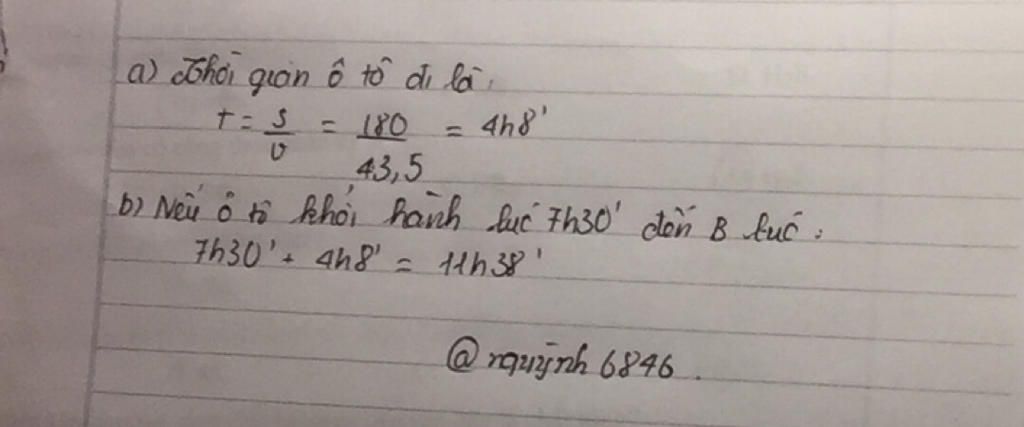 a) Thời gian ô tô đi là:
t = s/v = 180/43,5 = 4h8'
b) Nếu ô tô khởi hành lúc 7h30' đến B lúc:
7h30' + 4h8' = 11h38'
@nquỳnh6846.